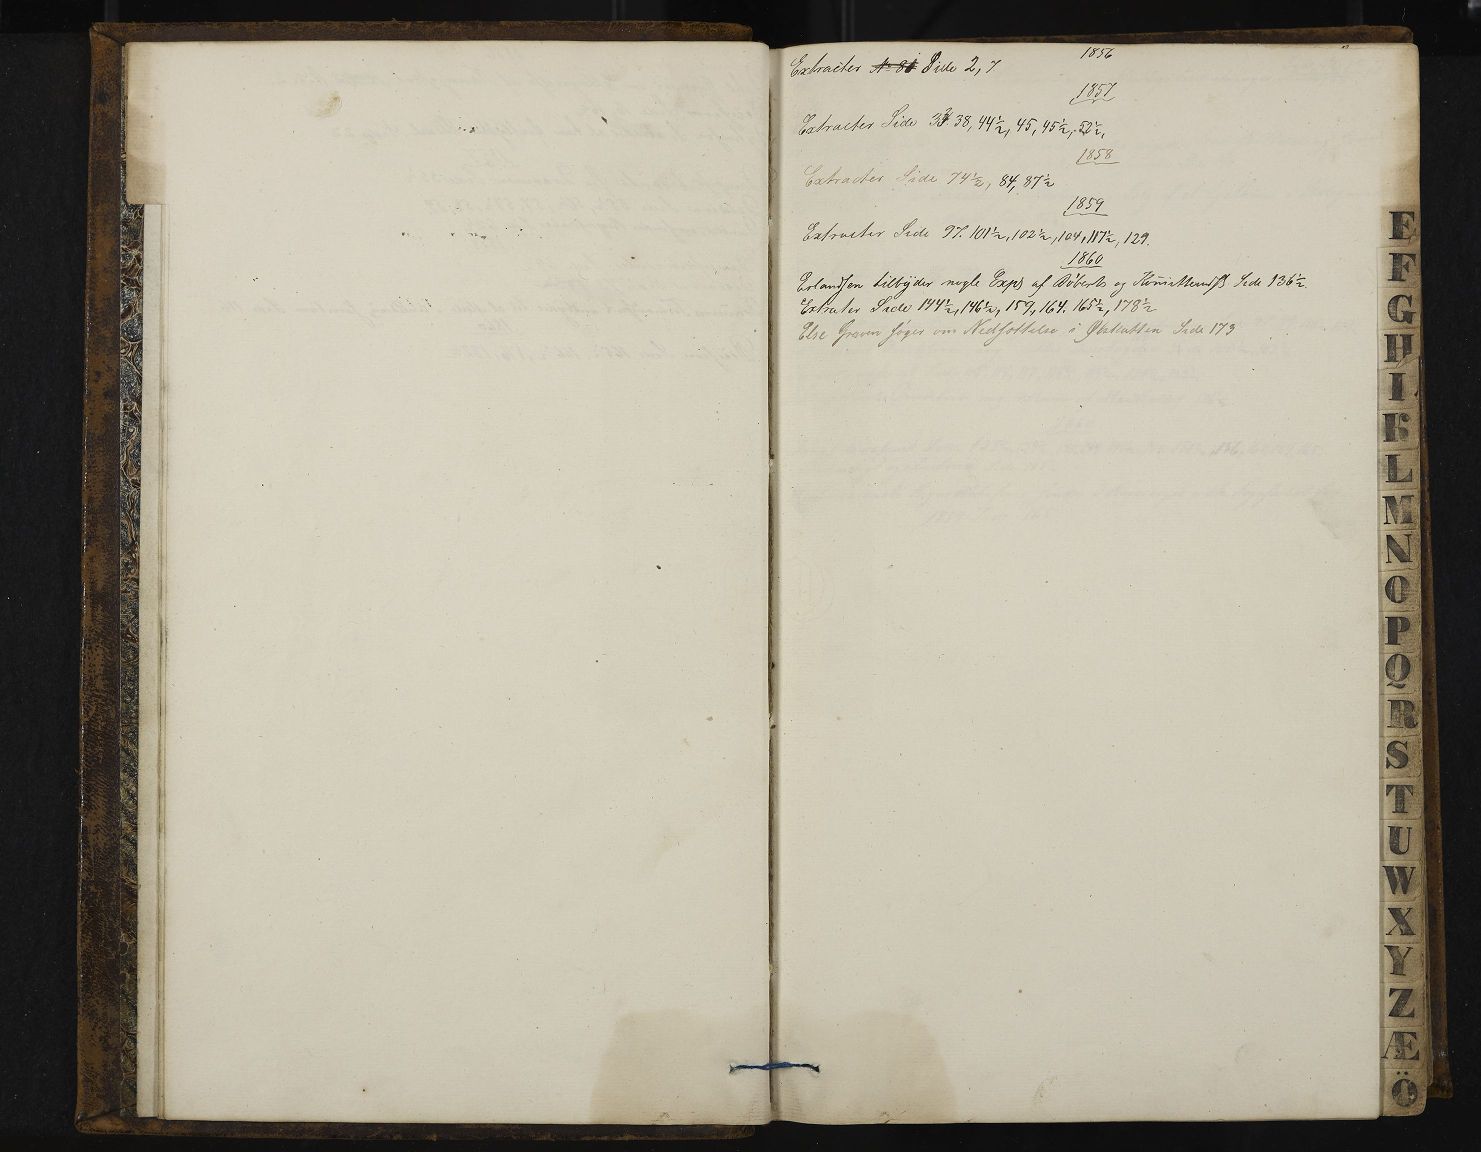 1856
Extracter Side 2, 7
1857
Extracter Side 38, 44½, 45, 45½, 52½,
1858
Extracter Side 74½, 84, 87½
1859
Extracter Side 97. 101½, 102½, 104, 117½, 129.
1860
Erlandsen tilbyder nogle Expl af og Side 136½.
Extrater Side 144½, 146½, 159, 164. 165½, 178½
Else Graven søger om Nedsættelse i Side 173
E
F
G
H
I
K
L
M
N
O
P
Q
R
S
T
U
W
X
Y
Z
Æ
Ö